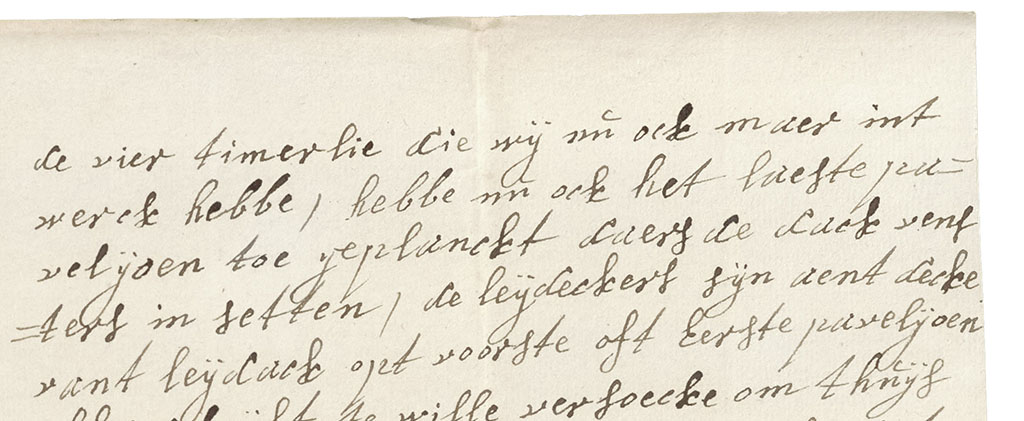 de vier timerlie die wij nu ock maer int
werck hebbe, hebbe nu ock het laeste pa=
velijoen toe geplanckt daers de dack vens
=ters in setten, de leijdeckers sijn aent decke
vant leijdack opt voorste oft Eerste pavelijoen
te wille versoecke om thuijs